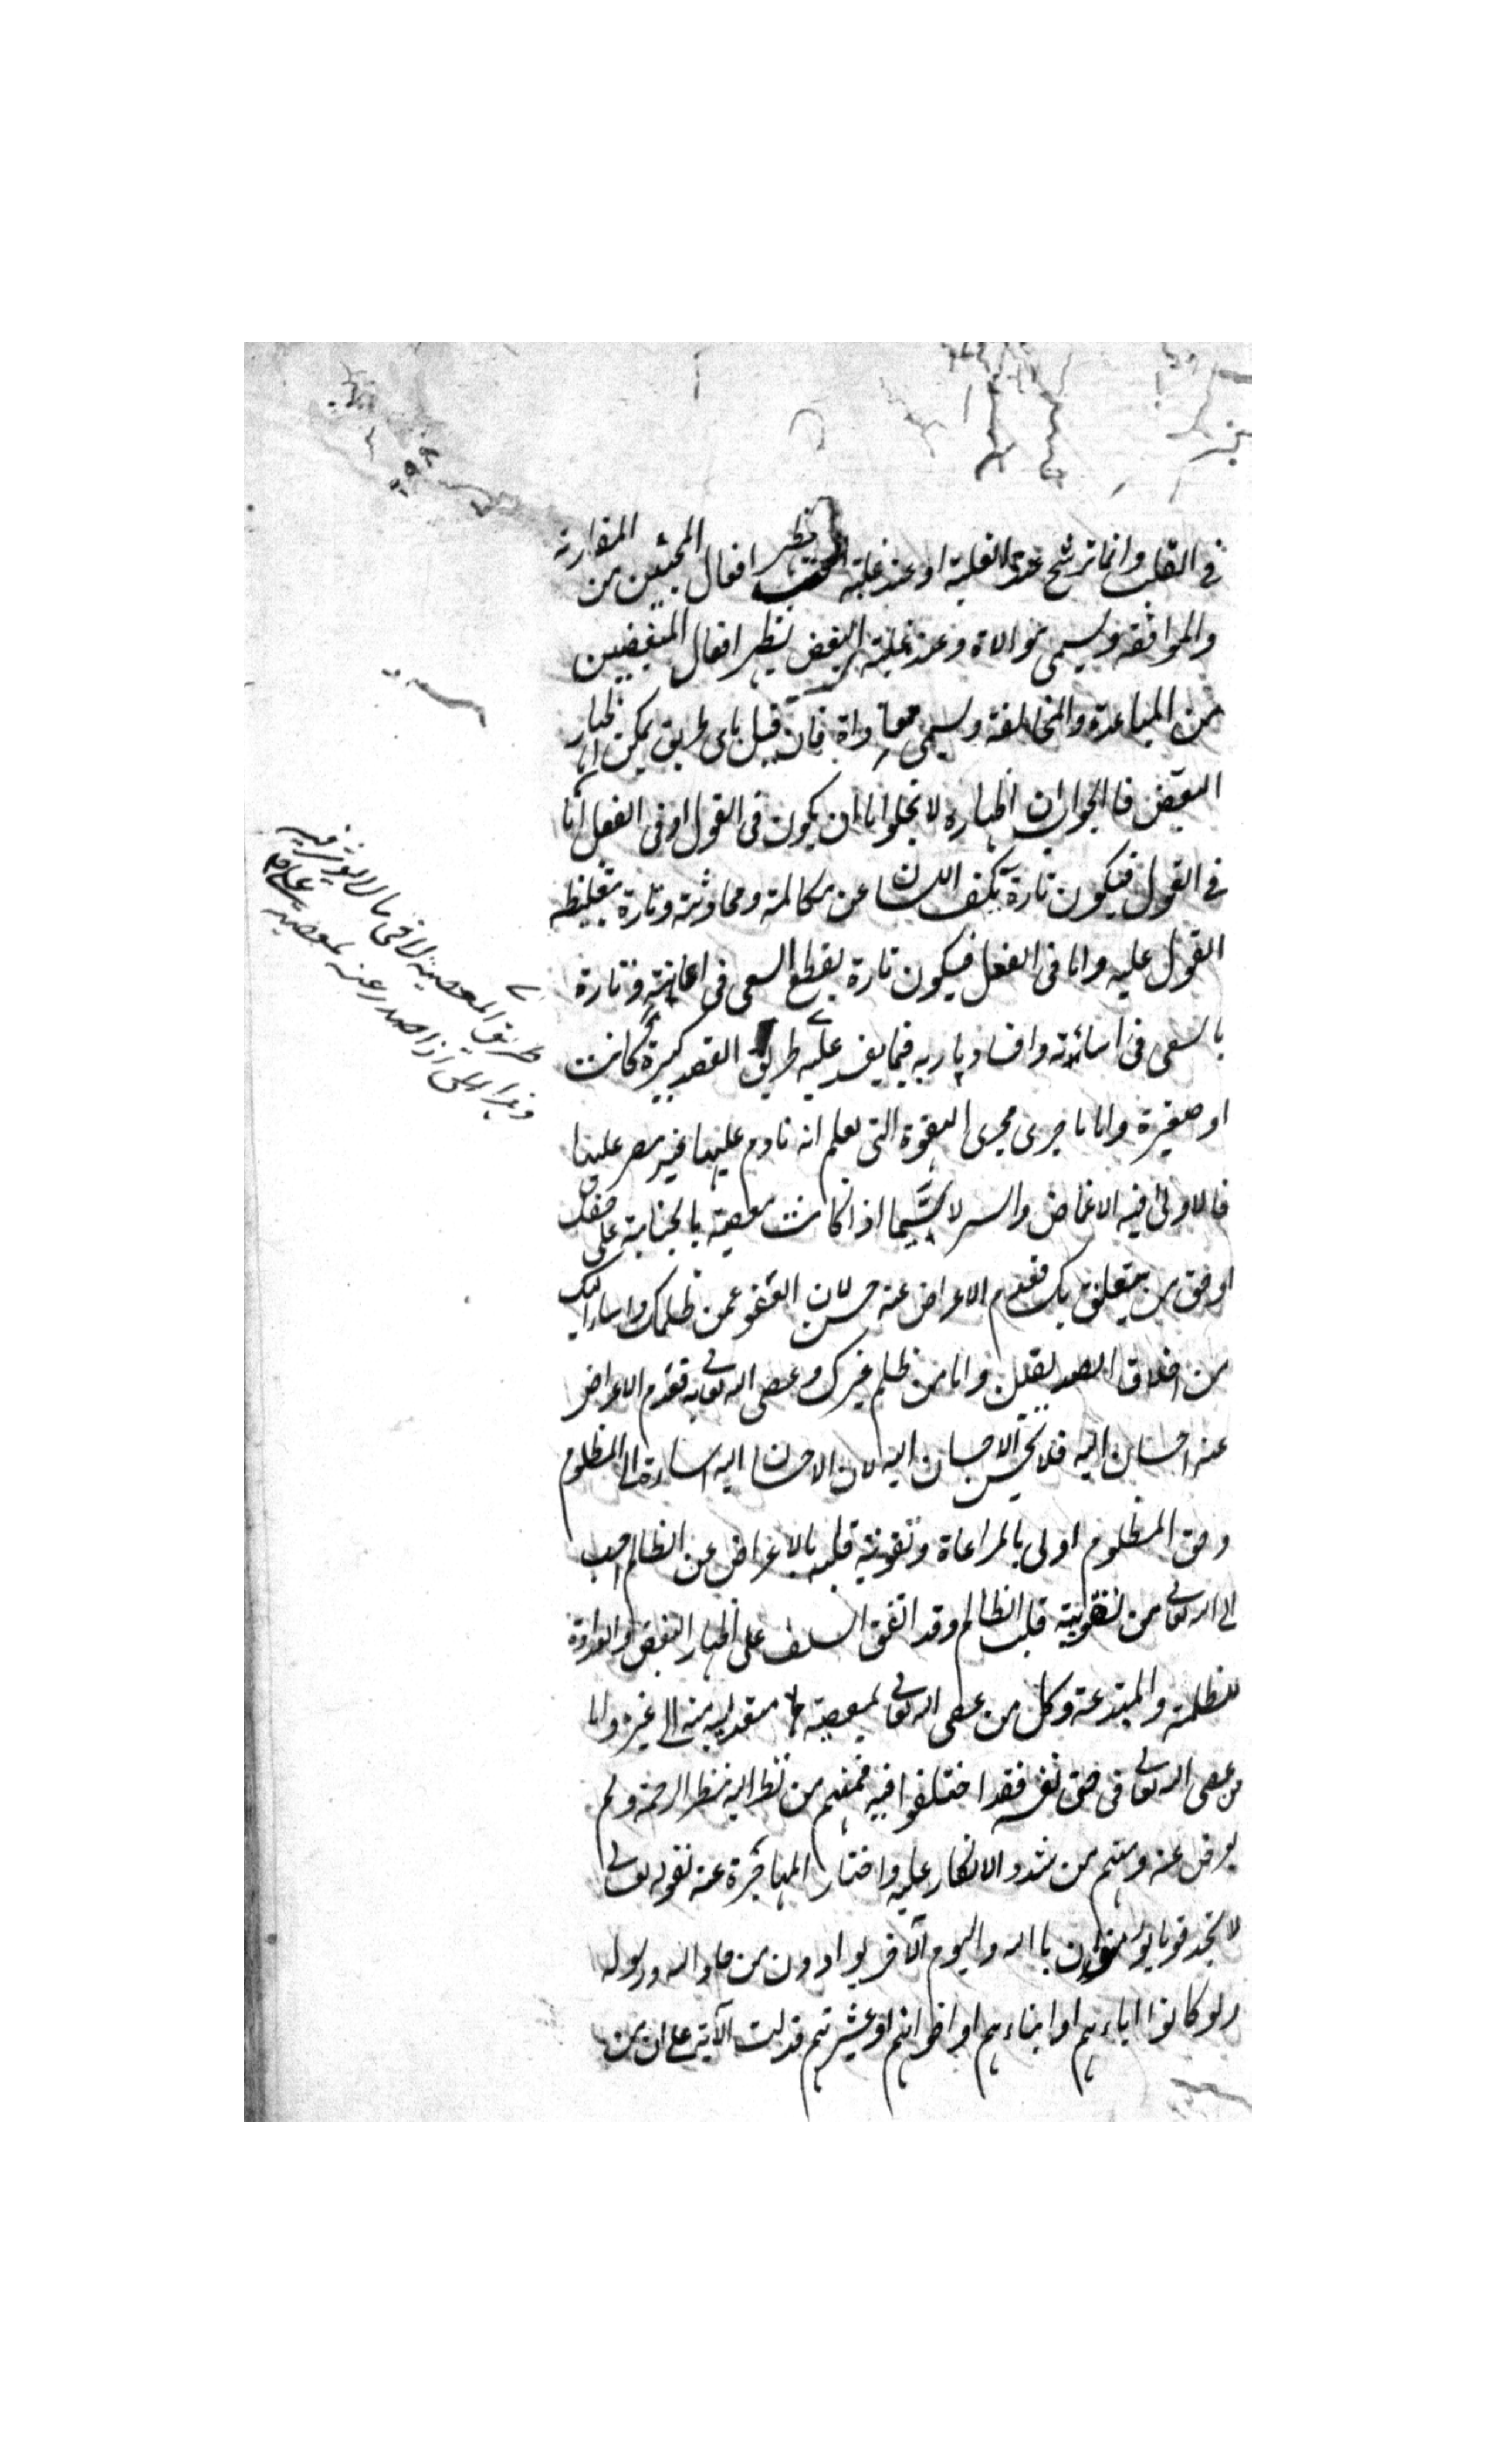 في القلب وانما ترشح عند الغلبة او عند غلبة الحب تظهر افعال المحبين من المقاربة
والموافقة ويسمى موالاة وعند غلبة البغض تظهر افعال المبغضين
من المباعدة والمخالفة ويسمى معاداة فان قيل باى طريق يمكن اظهار
البغض فالجواب ان اظهاره لا يخلوا اما ان يكون في القول او في الفعل اما
في القول فيكون تارة بكف اللسان عن مكالمته ومحادثته وتارة بتغليظ
القول عليه واما في الفعل فيكون تارة بقطع السعى في اعانته وتارة
بالسعى في اسائته وافساد مآربه فيما يفسد عليه طريق القصد كبيرة كانت
او صغيرة واما ما جرى مجرى الهفوة التى يعلم انه نادم عليها غير مصر عليها
فالاولى فيه الاغماض والستر لا سيما اذا كانت معصيته بالجناية على حقك
او حق من يتعلق بك فعدم الاعراض عنه حسن لان العفو عمن ظلمك واساء اليك
من اخلاق الصديقين واما من ظلم غيرك وعصى الله تعالى به فعدم الاعراض
عنه احسان اليه فلا يحسن الاحسان اليه لان الاحسان اليه اساءة الى المظلوم
وحق المظلوم اولى بالمراعاة وتقوية قلبه بالاعراض عن الظالم احب
الى الله تعالى من تقوية قلب الظالم وقد اتفق السلف على اظهار البغض والعداوة
للظلمة والمبتدعة وكل من عصى الله تعالى بمعصية متعدية منه الى غيره واما
من عصى الله تعالى في حق نفسه فقد اختلفوا فيه فمنهم من نظر اليه بنظر الرحمة ولم
يعرض عنه ومنهم من شدد الانكار عليه واختار المهاجرة عنه لقوله تعالى
لا تجد قوما يؤمنون بالله واليوم الآخر يوادون من حاد الله ورسوله
ولو كانوا اباءهم او ابناءهم او اخوانهم او عشيرتهم فدلت الآية على ان من
طريق المعصية لا في ما لا يؤثر فيه
وهذا الى اذا صدر عنه بمعصية